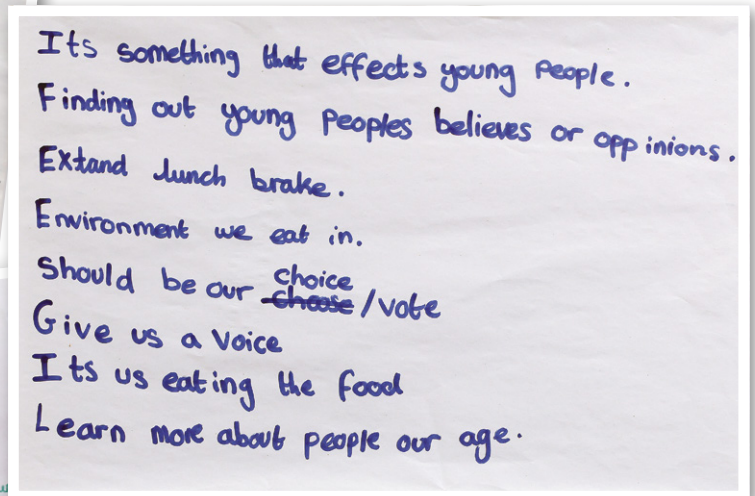 Its something that effects young People.
Finding out young Peoples believes or oppinions.
Extand lunch brake.
Environment we eat in.
Should be our choice choose / vote
Give us a Voice
Its us eating the food
Learn more about people our age.